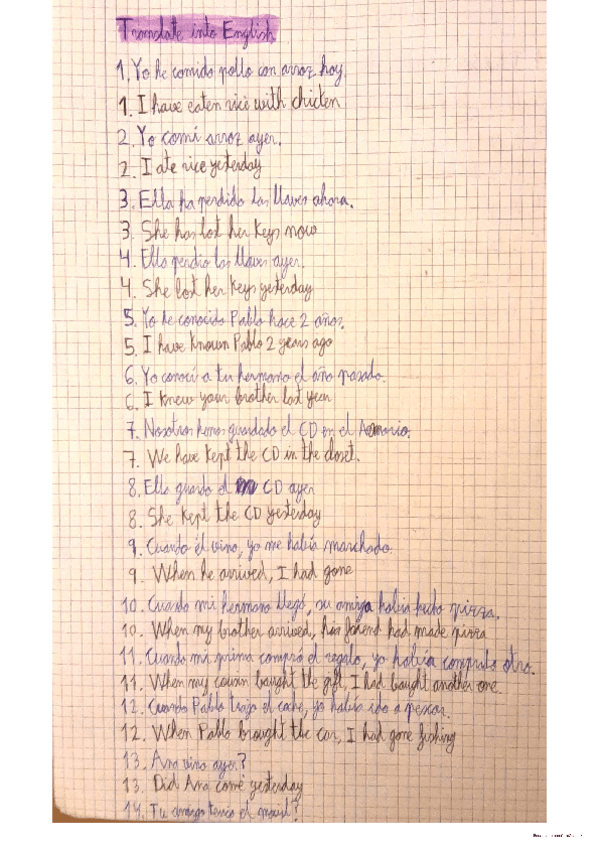 Translate into English
1. Yo he comido pollo con arroz hoy.
1. I have eaten rice with chicken
2. Yo comí arroz ayer.
2. I ate rice yesterday
3. Ella ha perdido las llaves ahora.
3. She has lost her keys now
4. Ella perdio las llaves ayer.
4. She lost her keys yesterday
5. Yo he conocido Pablo hace 2 años.
5. I have known Pablo 2 years ago
6. Yo conocí a tu hermano el año pasado.
6. I knew your brother last year
7. Nosotros hemos guardado el CD en el Armario.
7. We have kept the CD in the closet.
8. Ella guardo el CD ayer
8. She kept the CD yesterday
9. Cuando él vino, yo me había marchado.
9. When he arrived, I had gone
10. Cuando mi hermano llegó, su amiga había hecho pizza.
10. When my brother arrived, his friend had made pizza
11. Cuando mi prima compró el regalo, yo había comprado otro.
11. When my cousin bought the gift, I had bought another one.
12. Cuando Pablo trajo el coche, yo había ido a pescar.
12. When Pablo brought the car, I had gone fishing
13. Ana vino ayer?
13. Did Ana come yesterday
14. Tu amigo tenía el movil?